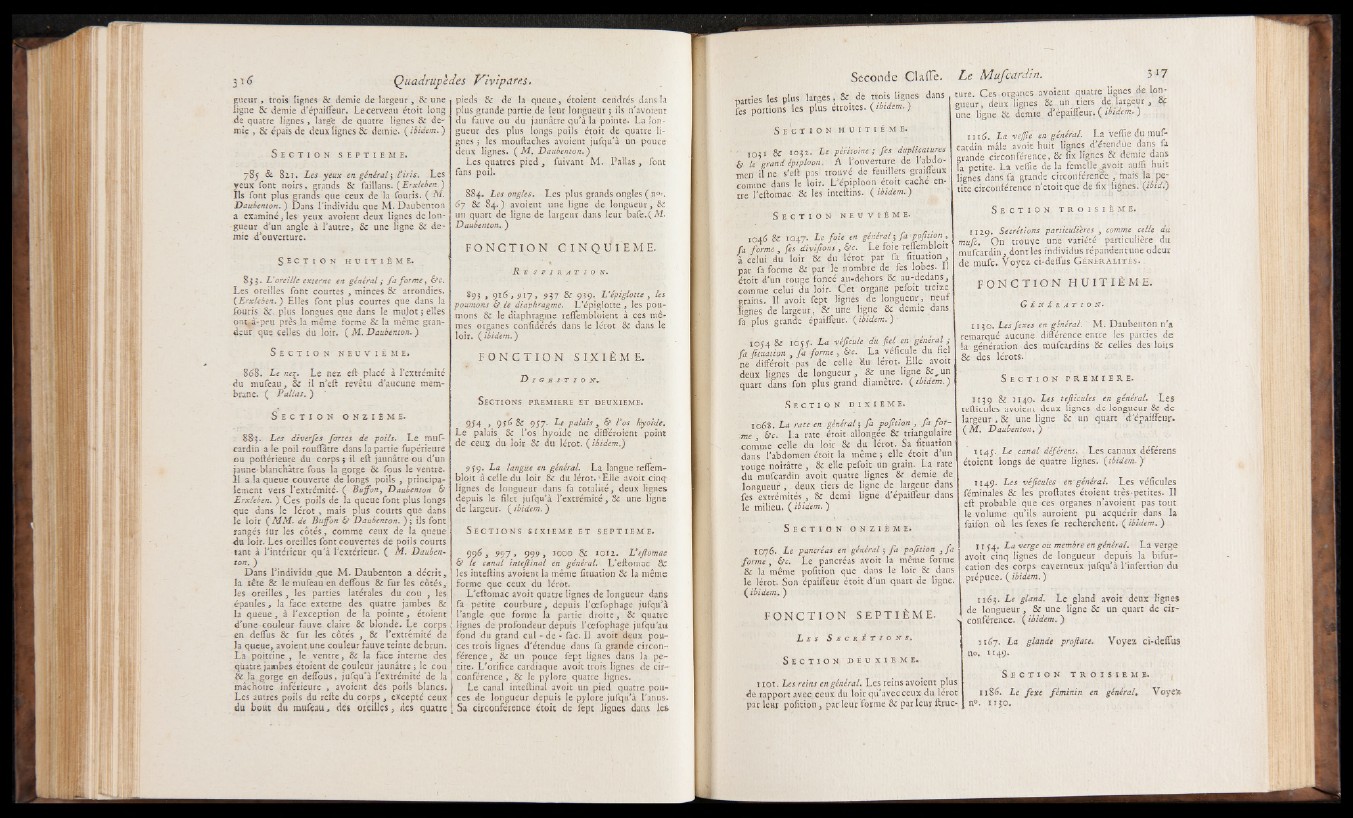 316 Quadrupèdes Vivipares.
gueur, trois lignes & demie de largeur, & une
ligne & demie d'épaisseur. Le cerveau étoit long
de quatre lignes, large de quatre lignes & de-
mie, & épais de deux lignes & demie. (ibidem.)
SECTION SEPTIEME.
785 & 821. Les yeux en général; l'iris. Les
yeux sont noirs, grands & saillans. (Erxleben)
Ils sont plus grands que ceux de la souris. (M.
Daubenton.) Dans l'individu que M. Daubenton
a examiné, les yeux avoient deux lignes de lon-
gueur d'un angle à l'autre, & une ligne & de-
mie d'ouverture.
SECTION HUITIÈME.
833. L'oreille externe en général; sa forme, &c.
Les oreilles sont courtes, minces & arrondies.
(Erxleben.) Elles sont plus courtes que dans la
souris & plus longues que dans le mulot; elles
ont à-peu près la même forme & la même gran-
deur que celles du loir. (M. Daubenton.)
SECTION NEUVIEME.
868. Le nez. Le nez est placé à l'extrémité
du museau, & il n'est revêtu d'aucune mem-
brane. (Pallas.)
SECTION ONZIEME.
883. Les diverses sortes de poils. Le mus-
cardin a le poil roussâtre dans la partie supérieure
ou postérieure du corps; il est jaunâtre ou d'un
jaune-blanchâtre sous la gorge & sous le ventre.
Il a la queue couverte de longs poils, principa-
lement vers l'extrémité. (Buffon, Daubenton &
Erxleben.) Ces poils de la queue sont plus longs
que dans le lérot, mais plus courts que dans
le loir (MM. de Buffon & Daubenton.); ils sont
rangés sur les côtés, comme ceux de la queue
du loir. Les oreilles sont couvertes de poils courts
tant à l'intérieur qu'à l'extérieur. (M. Dauben-
ton.)
Dans l'individu que M. Daubenton a décrit,
la tête & le museau en dessous & sur les côtés,
les oreilles, les parties latérales du cou, les
épaules, la face externe des quatre jambes &
la queue, à l'exception de la pointe, étoient
d'une couleur fauve claire & blonde. Le corps
en dessus & sur les côtés, & l'extrémité de
la queue, avoient une couleur fauve teinte de brun.
La poitrine, le ventre, & la face interne des
quatre jambes étoient de couleur jaunâtre; le cou
& la gorge en dessous, jusqu'à l'extrémité de la
mâchoire inférieure, avoient des poils blancs.
Les autres poils du reste du corps, excepté ceux
du bout du museau, des oreilles, des quatre
pieds & de la queue, étoient cendrés dans la
plus grande partie de leur longueur; ils n'avoient
du fauve ou du jaunâtre qu'à la pointe. La lon-
gueur des plus longs poils étoit de quatre li-
gnes; les moustaches avoient jusqu'à un pouce
deux lignes. (M. Daubenton.)
Les quatres pied, suivant M. Pallas, sont
sans poil.
884. Les ongles. Les plus grands ongles (nos.
67 & 84.) avoient une ligne de longueur, &
un quart de ligne de largeur dans leur base. (M.
Daubenton.)
FONCTION CINQUIEME.
RESPIRATION.
893, 916, 917, 937 & 939. L'épiglotte, les
poumons & le diaphragme. L'épiglotte, les pou-
mons & le diaphragme ressembloient à ces mê-
mes organes considérés dans le lérot & dans le
loir. (ibidem.)
FONCTION SIXIÈME.
DIGESTION.
SECTIONS PREMIERE ET DEUXIEME.
954, 956 & 957. Le palais, & l'os hyoïde.
Le palais & l'os hyoïde ne différoient point
de ceux du loir & du lérot. (ibidem.)
959. La langue en général. La langue ressem-
bloit à celle du loir & du lérot. Elle avoit cinq
lignes de longueur dans sa totalité, deux lignes
depuis le filet jusqu'à l'extrémité, & une ligne
de largeur. (ibidem.)
SECTIONS SIXIEME ET SEPTIEME.
996, 997, 999, 1000 & 1012. L'estomac
& le canal intestinal en général. L'estomac &
les intestins avoient la même situation & la même
forme que ceux du lérot.
L'estomac avoit quatre lignes de longueur dans
sa petite courbure, depuis l'œsophage jusqu'à
l'angle que forme la partie droite, & quatre
lignes de profondeur depuis l'œsophage jusqu'au
fond du grand cul-de-sac. Il avoit deux pou-
ces trois lignes d'étendue dans sa grande circon-
férence, & un pouce sept lignes dans la pe-
tite. L'orifice cardiaque avoit trois lignes de cir-
conférence, & le pylore quatre lignes.
Le canal intestinal avoit un pied quatre pou-
ces de longueur depuis le pylore jusqu'à l'anus.
Sa circonférence étoit de sept lignes dans les
Seconde Classe. Le Muscardin. 317
parties les plus larges, & de trois lignes dans
les portions les plus étroites. (ibidem.)
SECTION HUITIÈME.
1031 & 1042. Le péritoine; ses duplicatures
& le grand épiploon. A l'ouverture de l'abdo-
men il ne s'est pas trouvé de feuillets graisseux
comme dans le loir. L'épiploon étoit caché en-
tre l'estomac & les intestins. (ibidem.)
SECTION NEUVIÈME.
1046 & 1047. Le foie en général; sa position,
sa forme, ses divisions, &c. Le foie ressembloit
à celui du loir & du lérot par sa situation,
par sa forme & par le nombre de ses lobes. Il
étoit d'un rouge foncé au-dehors & au-dedans,
comme celui du loir. Cet organe pesoit treize
grains. Il avoit sept lignes de longueur, neuf
lignes de largeur, & une ligne & demie dans
sa plus grande épaisseur. (ibidem.)
1054 & 1055. La vésicule du fiel en général;
sa situation, sa forme, &c. La vésicule du fiel
ne différoit pas de celle du lérot. Elle avoit
deux lignes de longueur, & une ligne & un
quart dans son plus grand diamètre. (ibidem.)
SECTION DIXIEME.
1068. La rate en général; sa position, sa for-
me, &c. La rate étoit allongée & triangulaire
comme celle du loir & du lérot. Sa situation
dans l'abdomen étoit la même; elle étoit d'un
rouge noirâtre, & elle pesoit un grain. La rate
du muscardin avoit quatre lignes & demie de
longueur, deux tiers de ligne de largeur dans
ses extrémités, & demi ligne d'épaisseur dans
le milieu. (ibidem.)
SECTION ONZIÈME.
1076. Le pancréas en général; sa position, sa
forme, &c. Le pancréas avoit la même forme
& la même position que dans le loir & dans
le lérot. Son épaisseur étoit d'un quart de ligne.
(ibidem.)
FONCTION SEPTIÈME.
LES SECRÉTIONS.
SECTION DEUXIEME.
1101. Les reins en général. Les reins avoient plus
de rapport avec ceux du loir qu'avec ceux du lérot
par leur position, par leur forme & par leur struc-
ture. Ces organes avoient quatre lignes de lon-
gueur, deux lignes & un tiers de largeur, &
une ligne & demie d'épaisseur. (ibidem.)
1116. La vessie en général. La vessie du mus-
cardin mâle avoit huit lignes d'étendue dans sa
grande circonférence, & six lignes & demie dans
la petite. La vessie de la femelle avoit aussi huit
lignes dans sa grande circonférence, mais la pe-
tite circonférence n'étoit que de six lignes. (ibid.)
SECTION TROISIÈME.
1129. Secrétions particulières, comme celle du
musc. On trouve une variété particulière du
muscardin, dont les individus répandent une odeur
de musc. Voyez ci-dessus GÉNÉRALITÉS.
FONCTION HUITIÈME.
GÉNÉRATION.
1130. Les sexes en général. M. Daubenton n'a
remarqué aucune différence entre les parties de
la génération des muscardins & celles des loirs
& des lérots.
SECTION PREMIERE.
1139 & 1140. Les testicules en général. Les
testicules avoient deux lignes de longueur & de
largeur, & une ligne & un quart d'épaisseur.
(M. Daubenton.)
1145. Le canal déférent. Les canaux déférens
étoient longs de quatre lignes. (ibidem.)
1149. Les vésicules en général. Les vésicules
séminales & les prostates étoient très-petites. Il
est probable que ces organes n'avoient pas tout
le volume qu'ils auroient pu acquérir dans la
saison où les sexes se recherchent. (ibidem.)
1154. La verge ou membre en général. La verge
avoit cinq lignes de longueur depuis la bifur-
cation des corps caverneux jusqu'à l'insertion du
prépuce. (ibidem.)
1163. Le gland. Le gland avoit deux lignes
de longueur, & une ligne & un quart de cir-
conférence. (ibidem.)
1167. La glande prostate. Voyez ci-dessus
no. 1149.
SECTION TROISIEME.
1186. Le sexe féminin en général. Voyez
no. 1130.